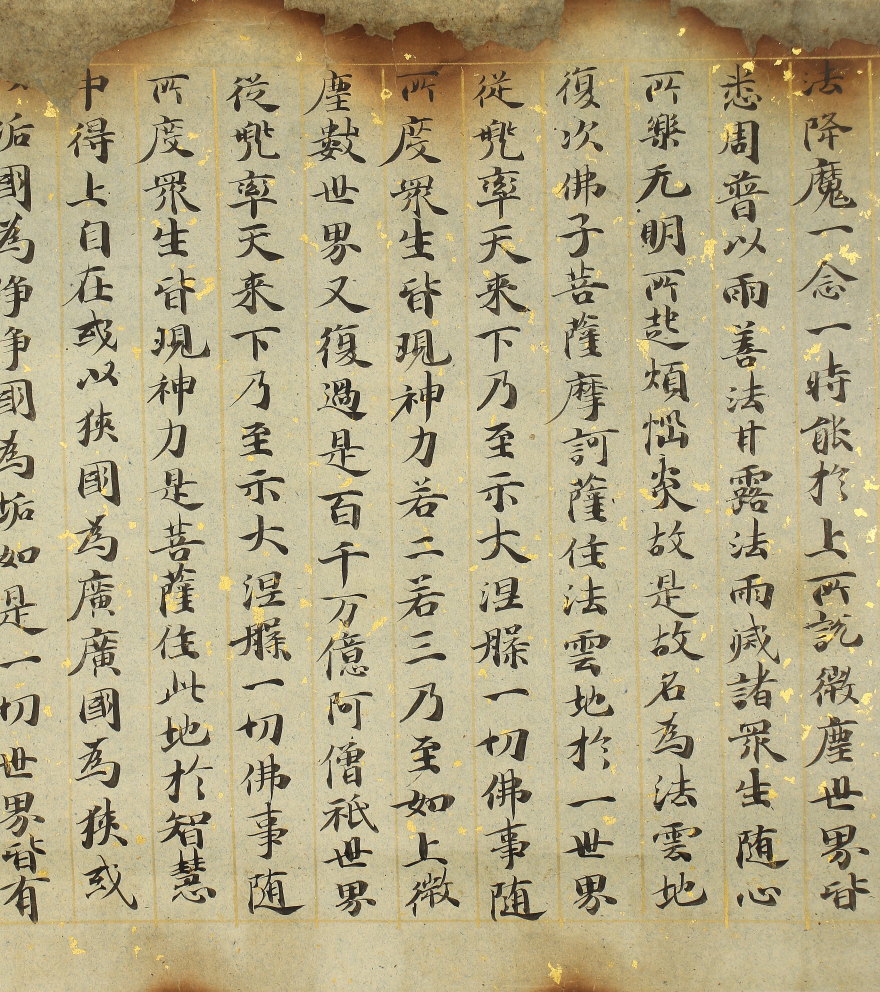 法降魔一念一時能於上所説微塵世界皆
悉周普以雨善法甘露法雨滅諸眾生随心
所樂无明所起煩惱炎故是故名為法雲地
復次佛子菩薩摩訶薩住法雲地於一世界
從兜率天来下乃至示大涅槃一切佛事随
所度眾生皆現神力若二若三乃至如上微
塵數世界又復過是百千万億阿僧祇世界
從兜率天来下乃至示大涅槃一切佛事随
所度眾生皆現神力是菩薩住此地於智慧
中得上自在或以狹國為廣廣國為狹或
垢國為浄浄國為垢如是一切世界皆有